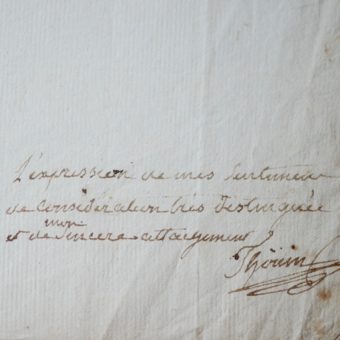 L'expression de mes sentimens
de considération très distinguée
mon
et de sincere attachement
Thöuin